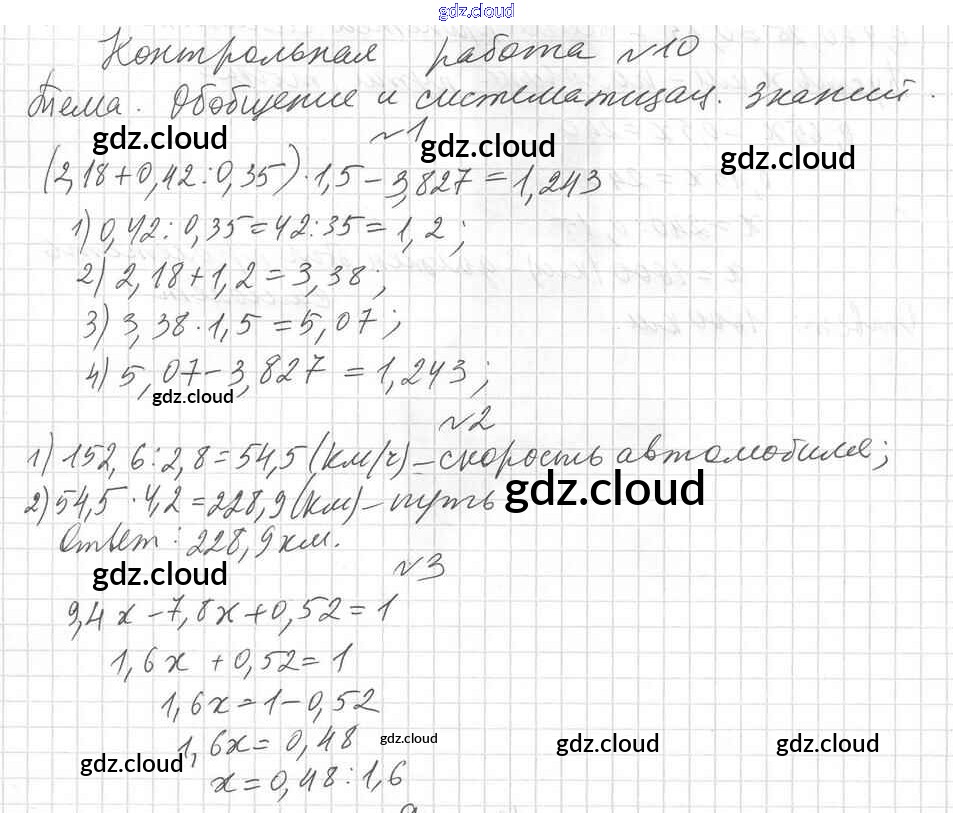 gdz.cloud
Контрольная работа №10
Тема. Обобщение и систематизац. знаний.
gdz.cloud
№1
gdz.cloud
gdz.cloud
(2,18+0,42:0,35)·1,5-3,827=1,243
1) 0,42:0,35=42:35=1,2;
2) 2,18+1,2=3,38;
3) 3,38·1,5=5,07;
4) 5,07-3,827=1,243;
gdz.cloud
№2
1) 152,6:2,8=54,5(км/ч)-скорость автомобиля;
2) 54,5·4,2=228,9(км)-путь
gdz.cloud
Ответ: 228,9км.
gdz.cloud
№3
9,4x-7,8x+0,52=1
1,6x+0,52=1
1,6x=1-0,52
1,6x=0,48
gdz.cloud
gdz.cloud
gdz.cloud
gdz.cloud
x=0,48:1,6